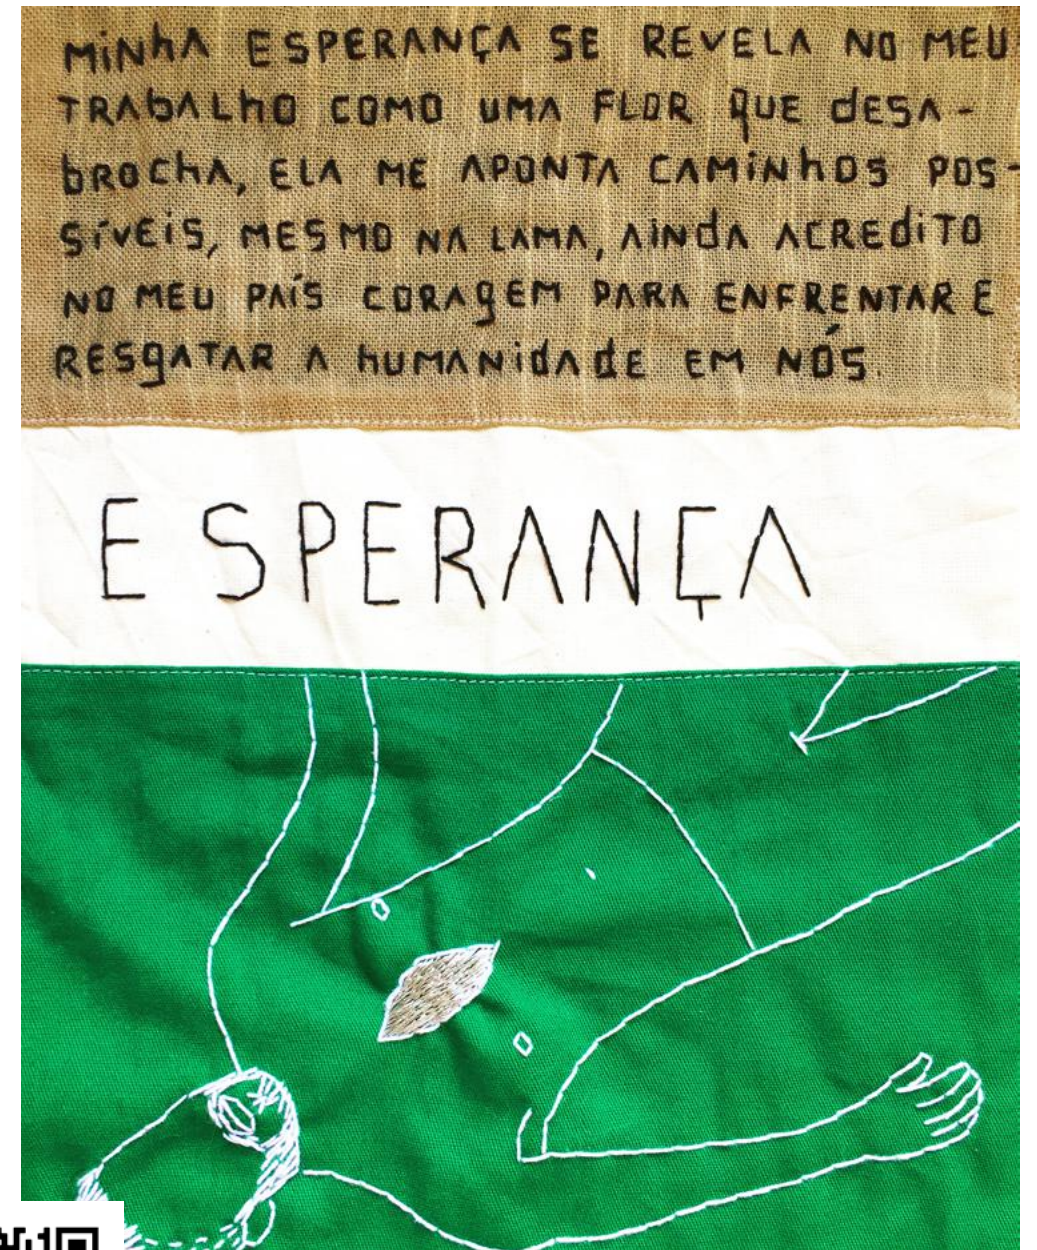 MINHA ESPERANÇA SE REVELA NO MEU
TRABALHO COMO UMA FLOR QUE DESA-
BROCHA, ELA ME APONTA CAMINHOS POS-
SÍVEIS, MESMO NA LAMA, AINDA ACREDITO
NO MEU PAÍS CORAGEM PARA ENFRENTAR E
RESGATAR A HUMANIDADE EM NÓS.
ESPERANÇA